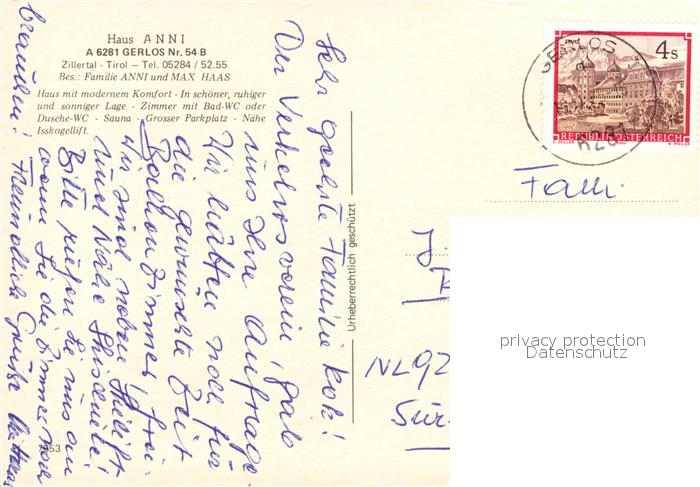 Haus ANNI
A 6281 GERLOS Nr. 54 B
Zillertal - Tirol — Tel. 05284 / 52.55
Bes.: Familie ANNI und MAX HAAS
Haus mit modernem Komfort - In schöner, ruhiger
und sonniger Lage - Zimmer mit Bad-WC oder
Dusche-WC - Sauna - Grosser Parkplatz - Nähe
Isskogellift.
Sehr geehrte Familie Kok!
Der Verkehrsverein gab
uns Ihre Anfrage
Wir hätten noch für
die gewünschte Zeit
Balkonzimmer frei.
Wir sind neben Skilift
und Nähe Skischule!
Bitte rufen Sie uns an
wenn Sie die Zimmer noch
brauchen! Freundliche Grüße
7953
Urheberrechtlich geschützt
GERLOS
6281
4 S
REPUBLIK ÖSTERREICH
Fam.
J.
NL92
Sur
privacy protection
Datenschutz